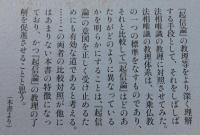 『起信論』の教理をより深く理解
する手段として、それをしばしば
法相唯識の教理に対照させてみた。
法相唯識の教理体系は、大乗仏教
の一つの標準をなすものであり、
それと比較して『起信論』はどのあ
たりがどのように異なっている
かを明かすことは、『起信論』
の意図を正しく受け止めるた
めにも有効であると考える。
……この両者の比較対照が他に
はあまりない本書の特徴になっ
ており、かつ『起信論』の教理の了
解を促進させることと思う。
（本書より）